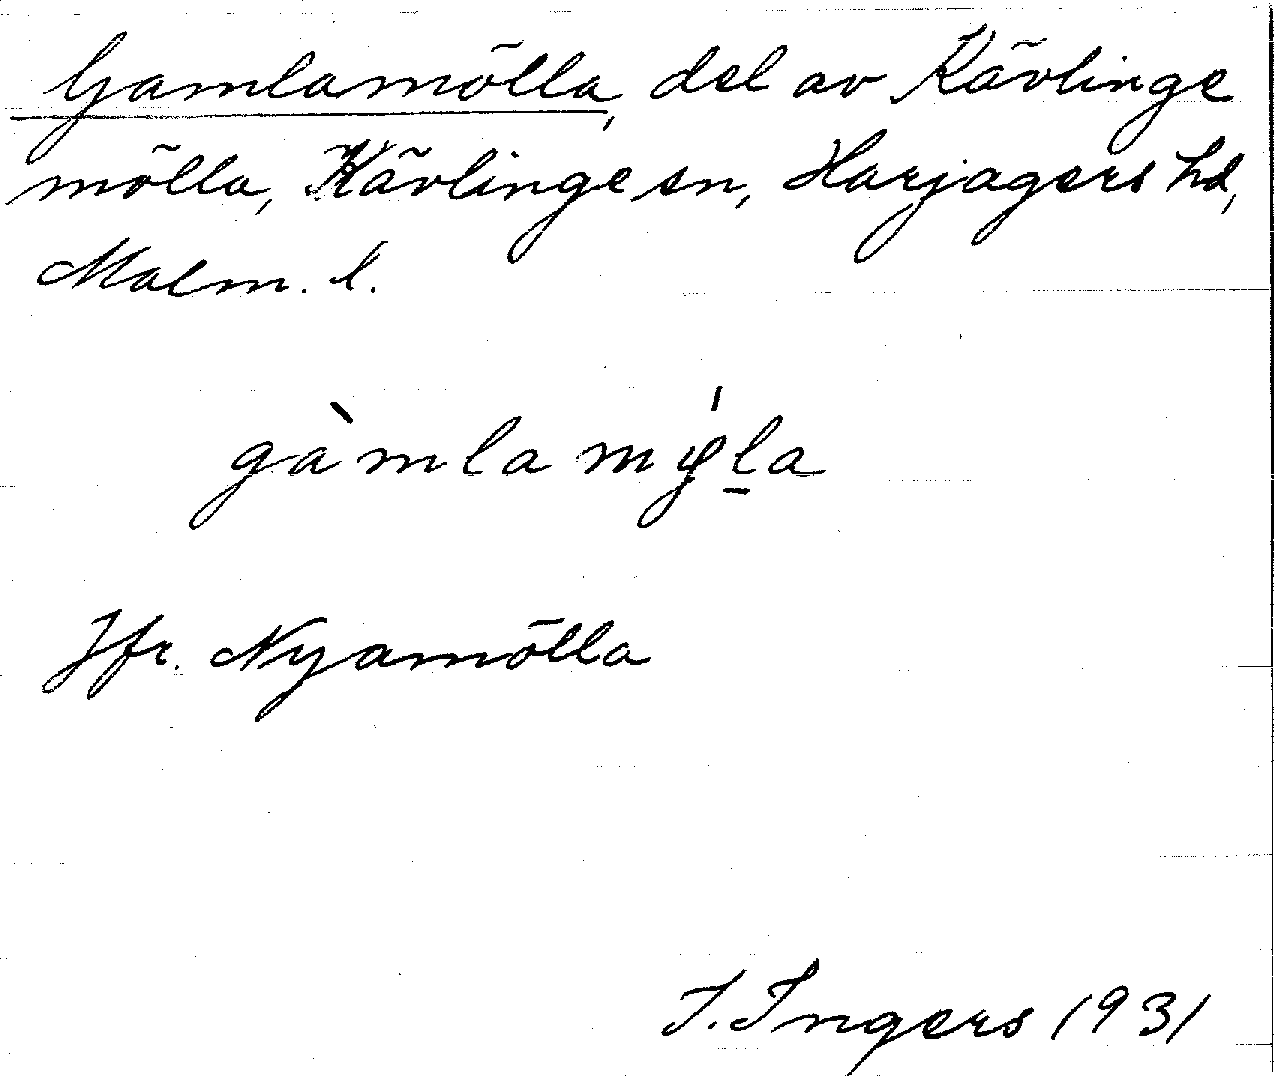 Gamlamölla, del av Kävlinge
mölla, Kävlinge sn, Harjagers hd,
Malm. l.
gàmlamý̱la
Jfr. Nyamölla
I. Ingers 1931